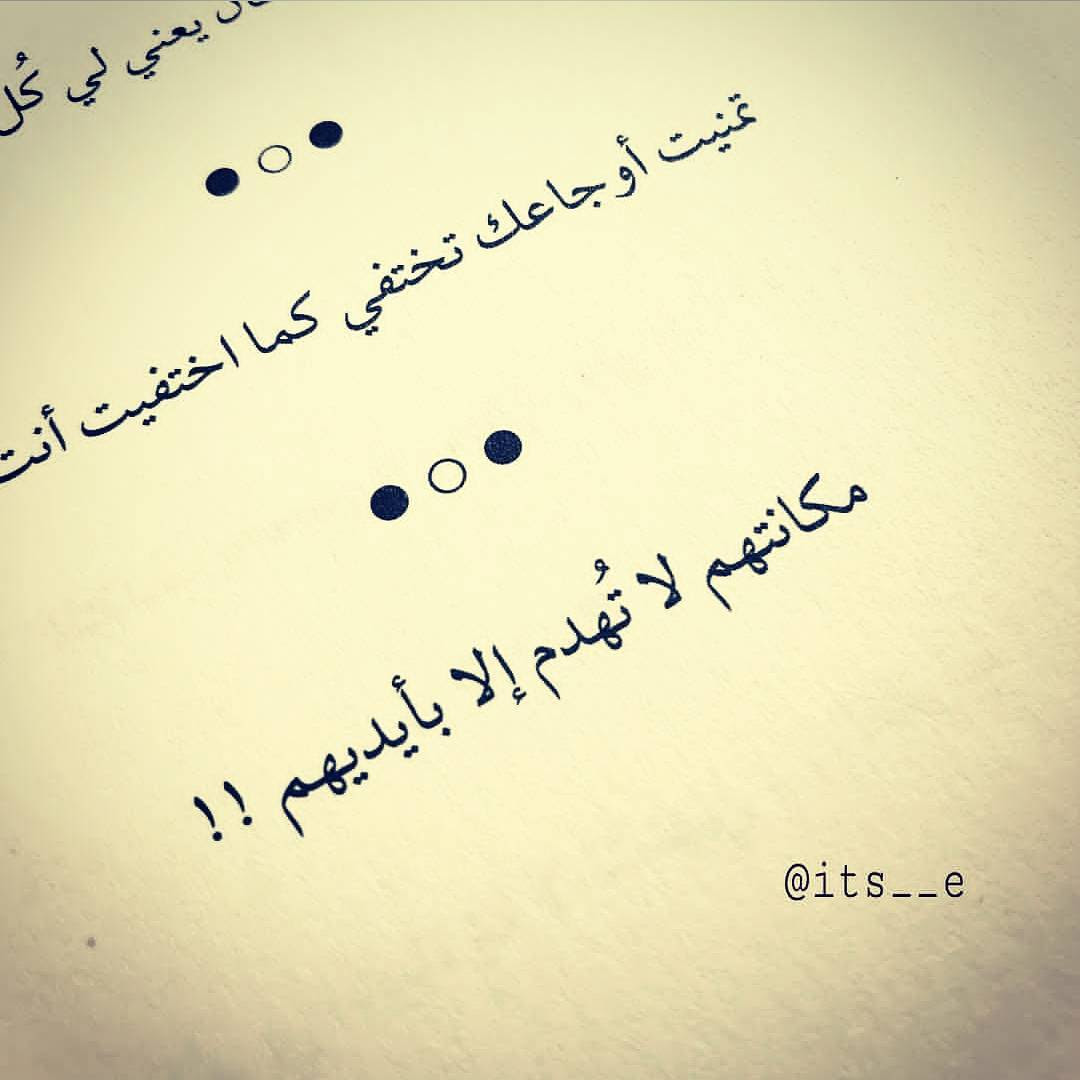 يعني لي كُل
●○●
تمنيت أوجاعك تختفي كما اختفيت أنت
●○●
مكانتهم لا تُهدم إلا بأيديهم !!
@its__e